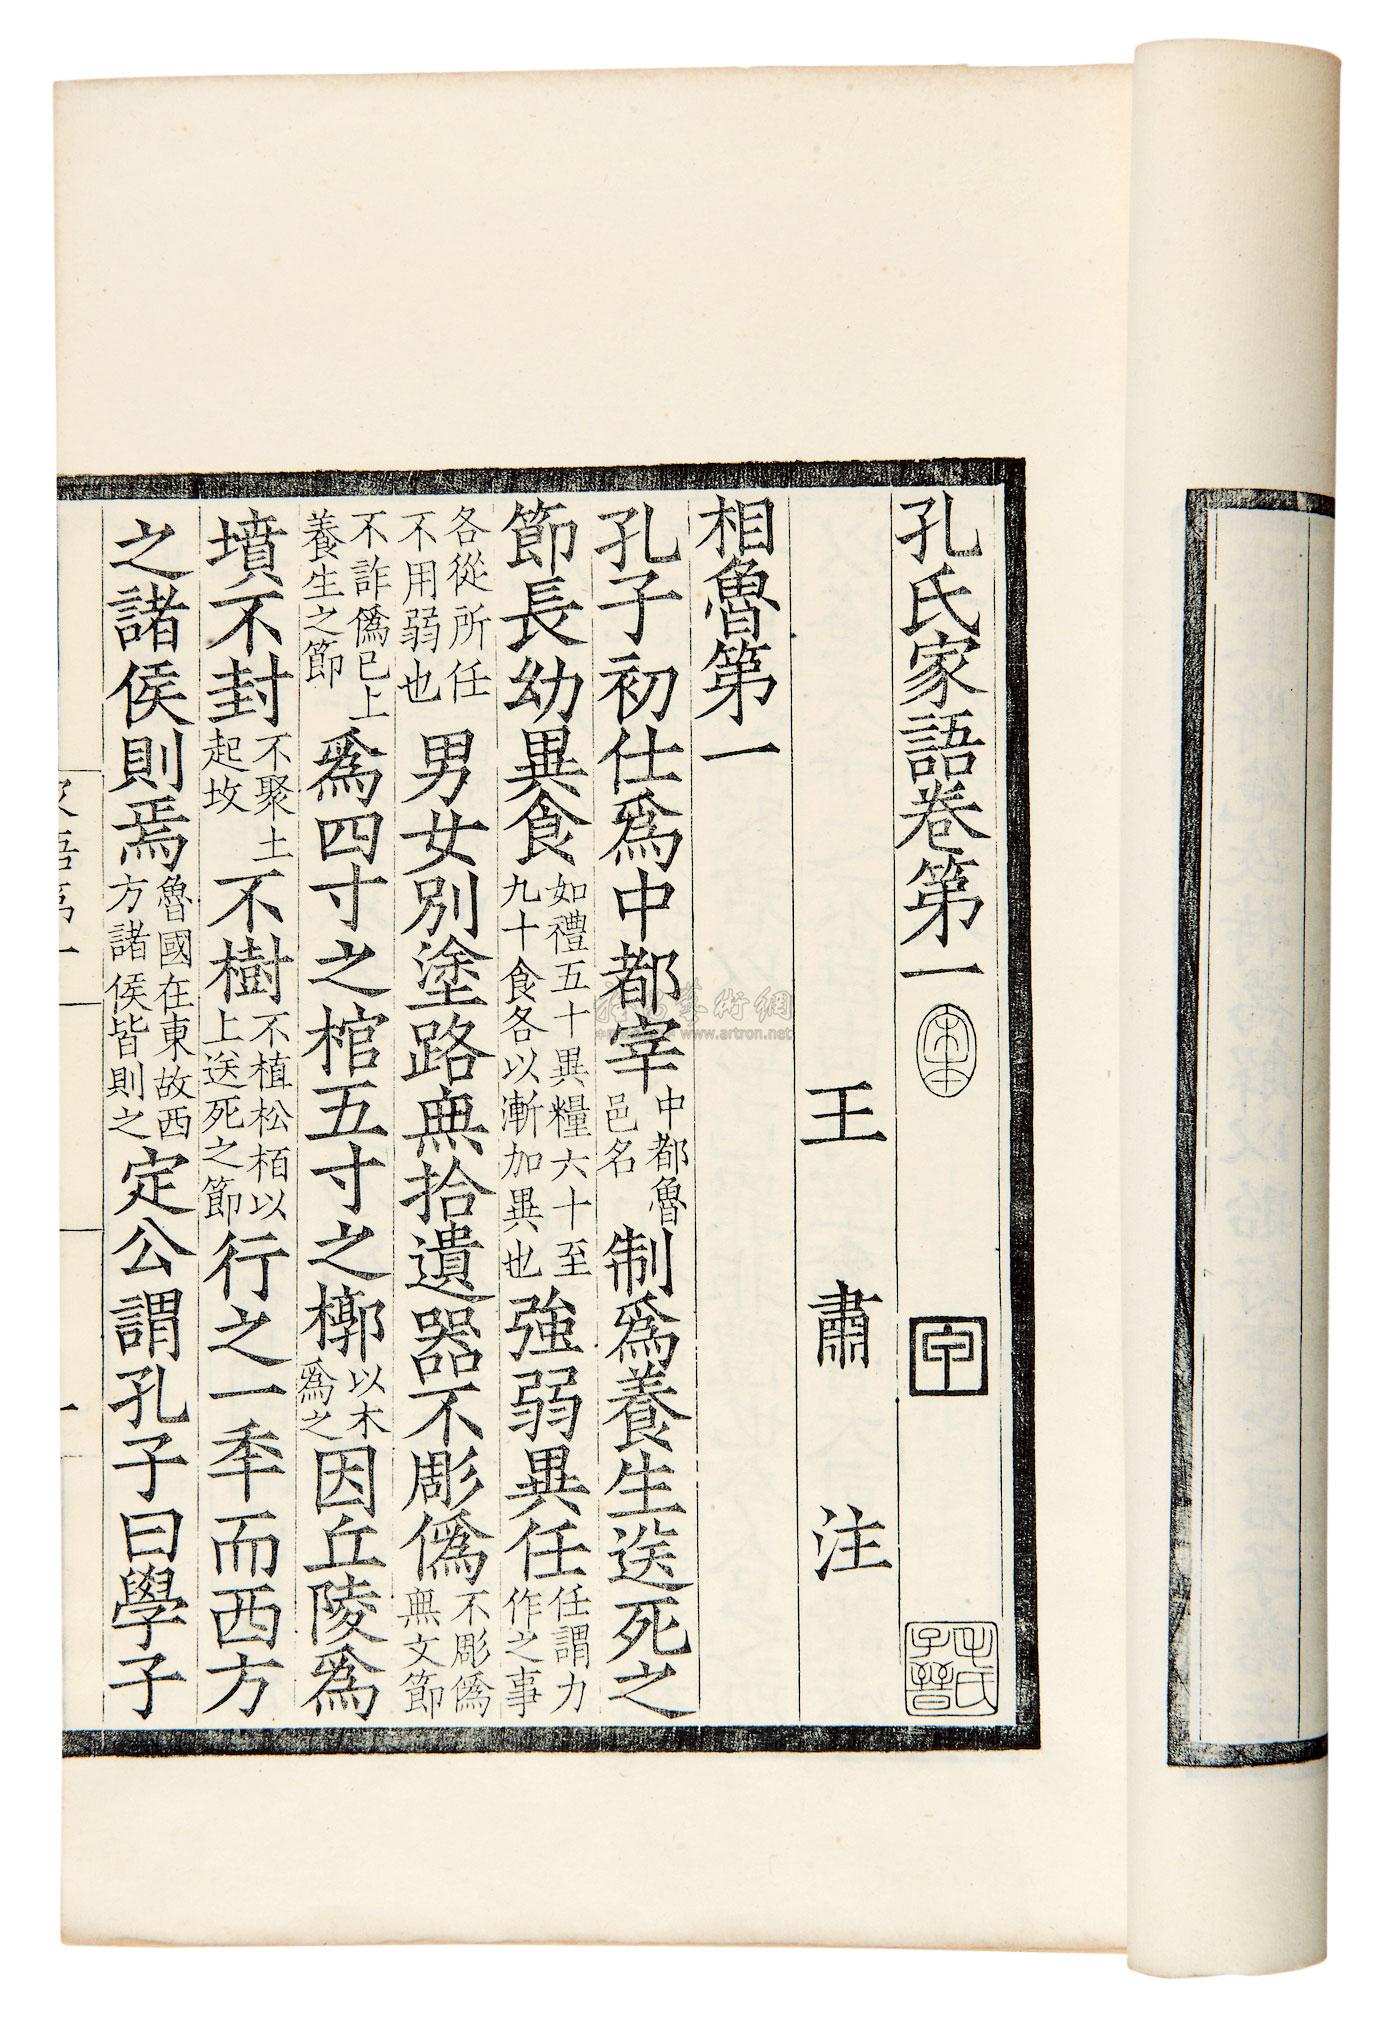 孔氏家語卷第一
宋本
甲
毛氏子晉
王肅注
相魯第一
孔子初仕爲中都宰中都魯邑名制爲養生送死之
節長幼異食如禮五十異糧六十至九十食各以漸加異也強弱異任任謂力作之事
各從所任不用弱也男女別塗路無拾遺器不彫僞不彫僞無文節
不詐僞已上養生之節爲四寸之棺五寸之槨以木爲之因丘陵爲
墳不封不聚土起坟不樹不植松栢以上送死之節行之一秊而西方
之諸侯則焉魯國在東故西方諸侯皆則之定公謂孔子曰學子
家語第一
一
www.artron.net